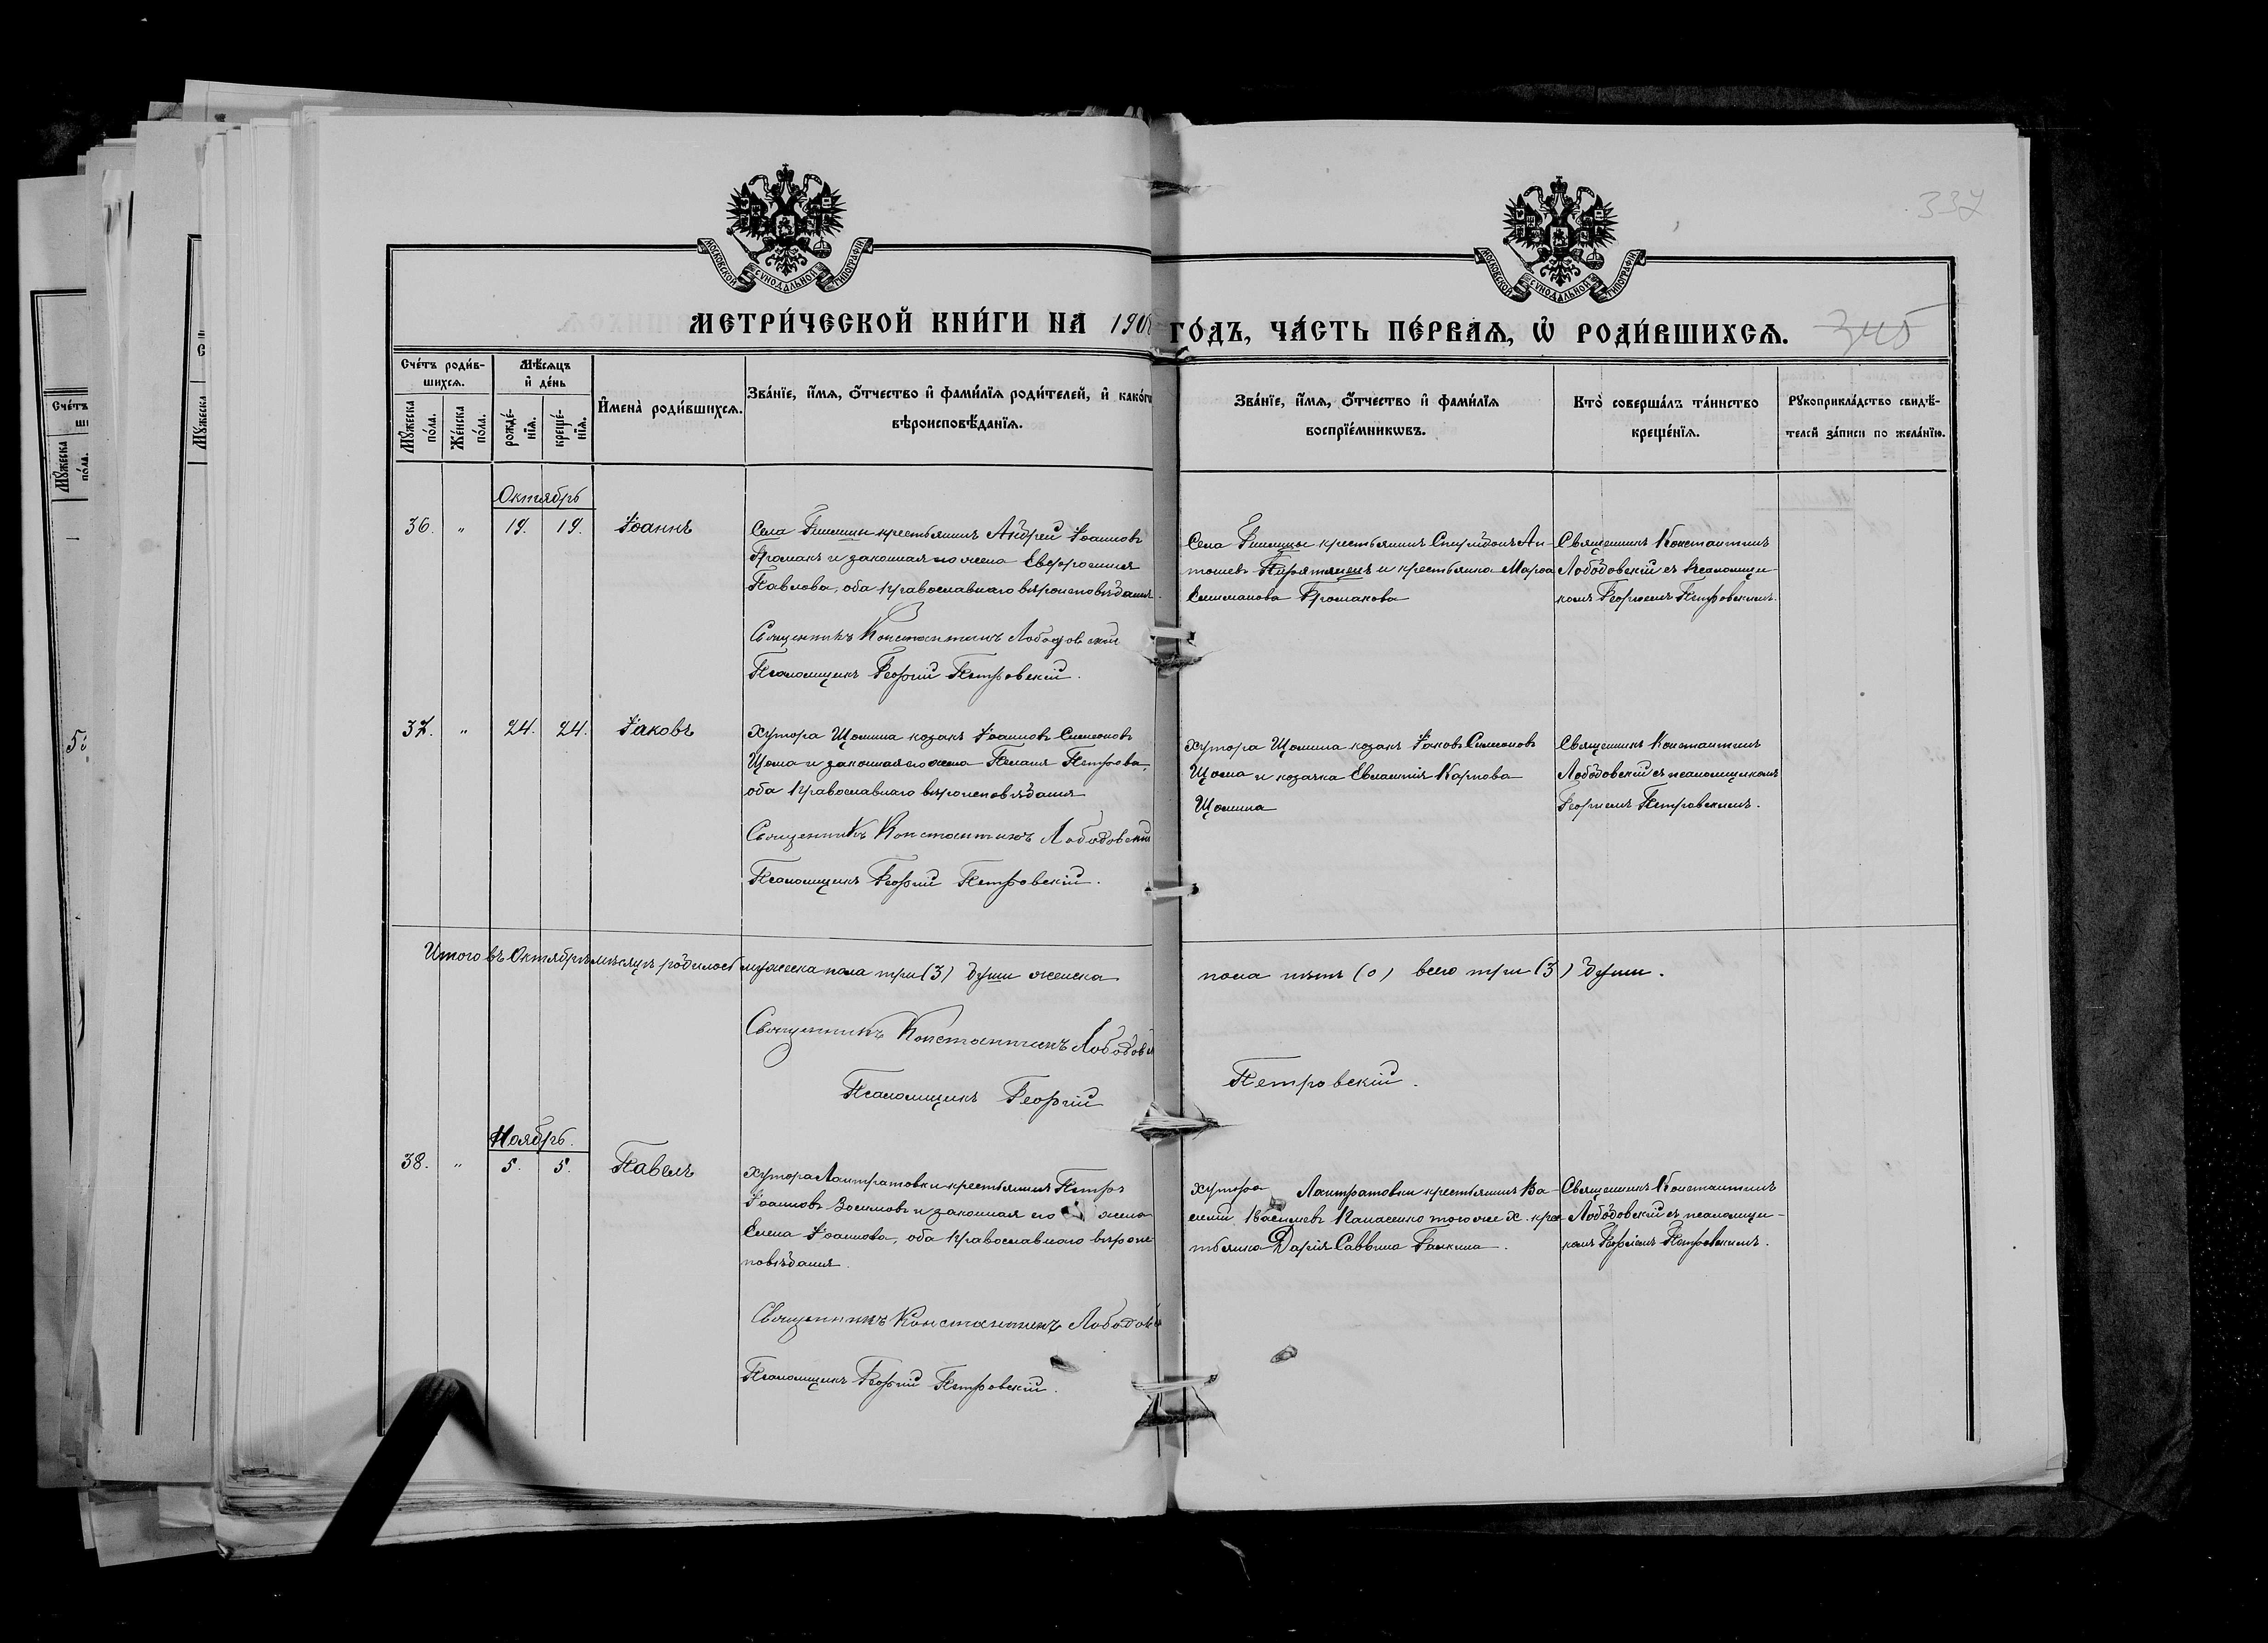 337
МОСКОВСКОЙ СѴНОДАЛЬНОЙ ТИПОГРАФІИ
МОСКОВСКОЙ СѴНОДАЛЬНОЙ ТИПОГРАФІИ
МЕТРИ́ЧЕСКОЙ КНИ́ГИ НА 190
ГО́ДЪ, ЧА́СТЬ ПЕ́РВАѦ, Ѡ РОДИ́ВШИХСѦ.
345
Сче́тъ роди́в-
шихсѧ.
Мѣ́сѧцъ
и҆ де́нь
Мꙋ́жеска по́ла.
Же́нска по́ла.
рожде́-нїѧ.
креще́-нїѧ.
И҆мена̀ роди́вшихсѧ.
Зва́нїе, и҆́мѧ, ѻ҆́тчество и҆ фами́лїѧ роди́телей, и҆ како́гѡ
вѣроисповѣ́данїѧ.
Зва́нїе, и҆́мѧ, ѻ҆́тчество и҆ фами́лїѧ
воспрїе́мникѡвъ.
Кто̀ соверша́лъ та́инство
креще́нїѧ.
Рꙋкоприкла́дство свидѣ́-
телей за́писи по жела́нїю.
Октябрь
36. " 19. 19. Іоаннъ
крестьянинъ Андрей Іоанновъ
Громакъ и законная его жена Евфросинія
Павлова, оба православнаго вѣроисповѣданія.
Священникъ Константинъ Лободовскій
Псаломщикъ Георгій Петровскій.
крестьянинъ Спиридонъ Ан-
тоніевъ Пирятинецъ и крестьянка Марѳа
Громакова
Священникъ Константинъ
Лободовскій съ псаломщи-
комъ Георгіемъ Петровскимъ.
37. " 24. 24. Іаковъ
Хутора Щомина козакъ Іоанновъ Симеоновъ
Щома и законная его жена Пелагія Петрова,
оба православнаго вѣроисповѣданія
Священникъ Константинъ Лободовскій
Псаломщикъ Георгій Петровскій.
Хутора Щомина козакъ Іаковъ Симеоновъ
Щома и козачка Евлампія Карпова
Щомина
Священникъ Константинъ
Лободовскій съ псаломщикомъ
Георгіемъ Петровскимъ.
Итого въ Октябрѣ мѣсяцѣ родилось мужеска пола три (3) души женска
пола нѣтъ (0) всего три (3) души.
Священникъ Константинъ Лободовск
Псаломщикъ Георгій
Петровскій.
Ноябрь.
38. " 5. 5. Павелъ
Хутора Лантратовки крестьянинъ Петръ
Іоанновъ Зосимовъ и законная его жена
Елена Іоаннова, оба православнаго вѣроис-
повѣданія.
Священникъ Константинъ Лободов
Псаломщикъ Георгій Петровскій.
Хутора Лантратовки крестьянинъ Ва-
силій Васильевъ Панасенко того же х. крес-
тьянка Дарія Саввина Галкина.
Священникъ Константинъ
Лободовскій съ псаломщи-
комъ Георгіемъ Петровскимъ.